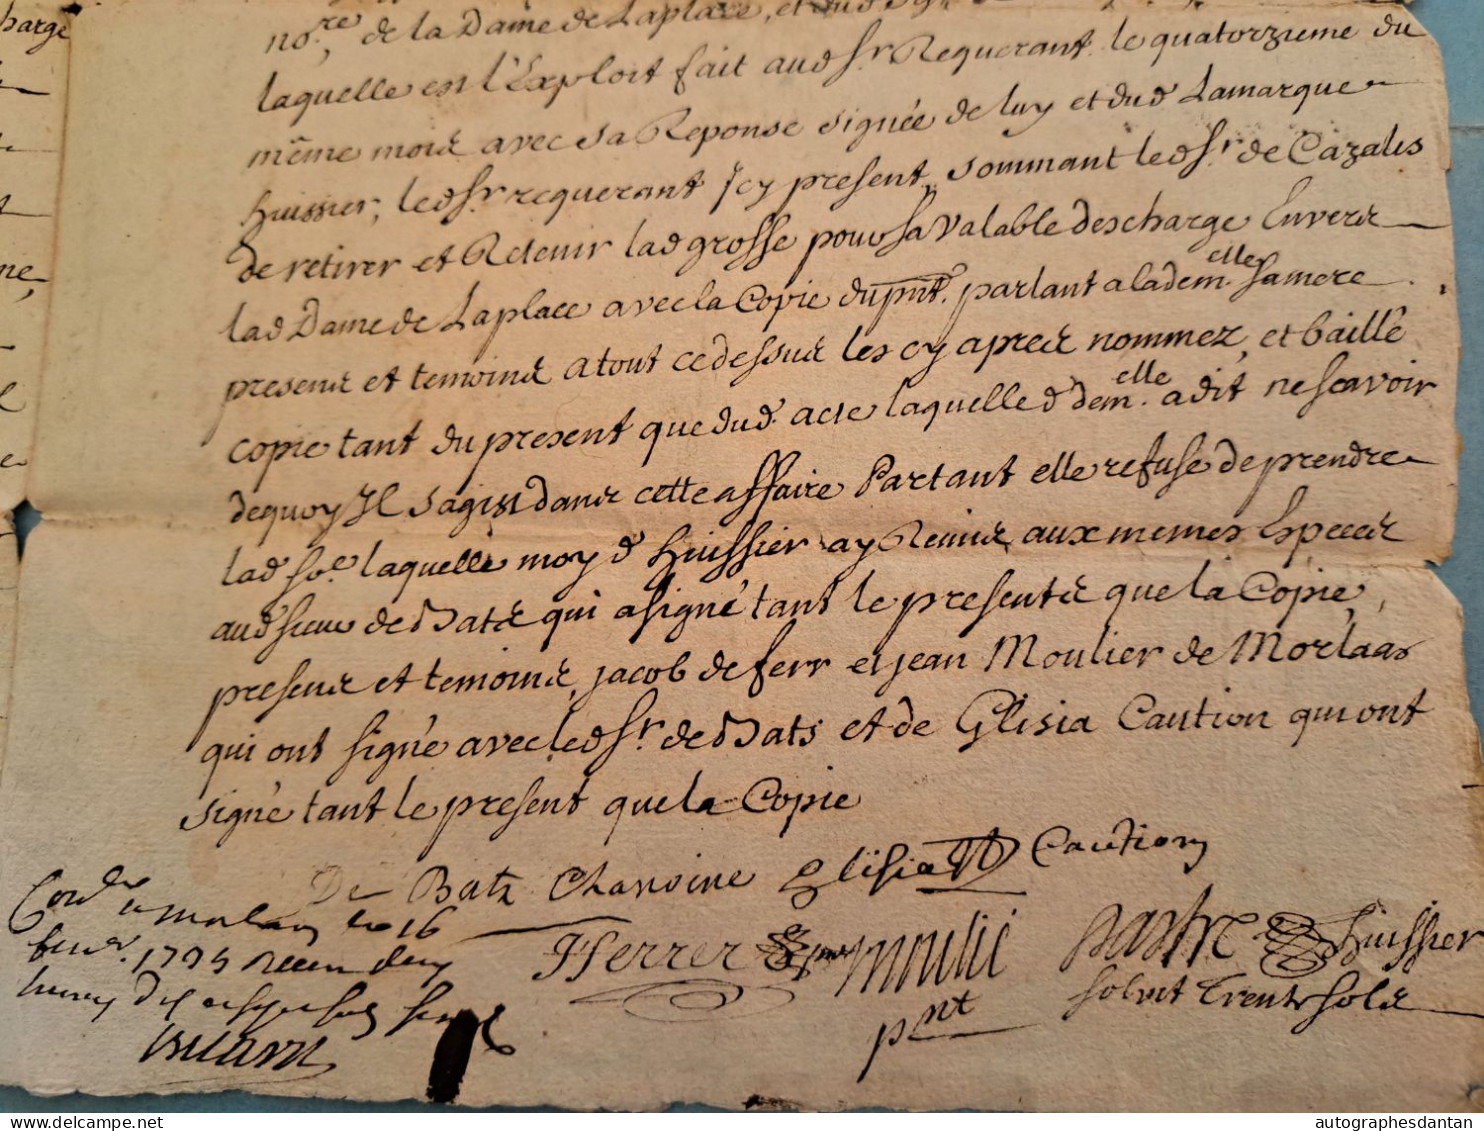 harge
no.re de la Dame de Laplace, et dud
laquelle est l'Exploit fait aud sr. Requerant le quatorzieme du
même mois avec sa Reponse signée de luy et dud Lamarque
huissier, led sr. requerant Jcy present, sommant led sr. de Cazalis
de retirer et Retenir lad grosse pour sa valable descharge Envers
lad Dame de Laplace avec la Copie du pnt. parlant a la dem.elle sa mere
presens et temoins a tout ce dessus les cy apres nommez, et baillé
copie tant du present que dud. acte laquelle d dem.elle a dit ne scavoir
de quoy Jl sagist dans cette affaire Partant elle refuse de prendre
lad so.e laquelle moy d huissier ay Remis aux memes Especes
aud sieur de Bats qui a signé tant le presents que la Copie,
presens et temoins, jacob de ferr et jean Moulier de Morlaas
qui ont signé avec led sr. de Bats et de Glisia Caution qui ont
signé tant le present que la Copie
De Batz Chanoine glisia Caution
le 16
JFerrer moulié huissier
pnt solvit trente sols
www.autographesdantan.com